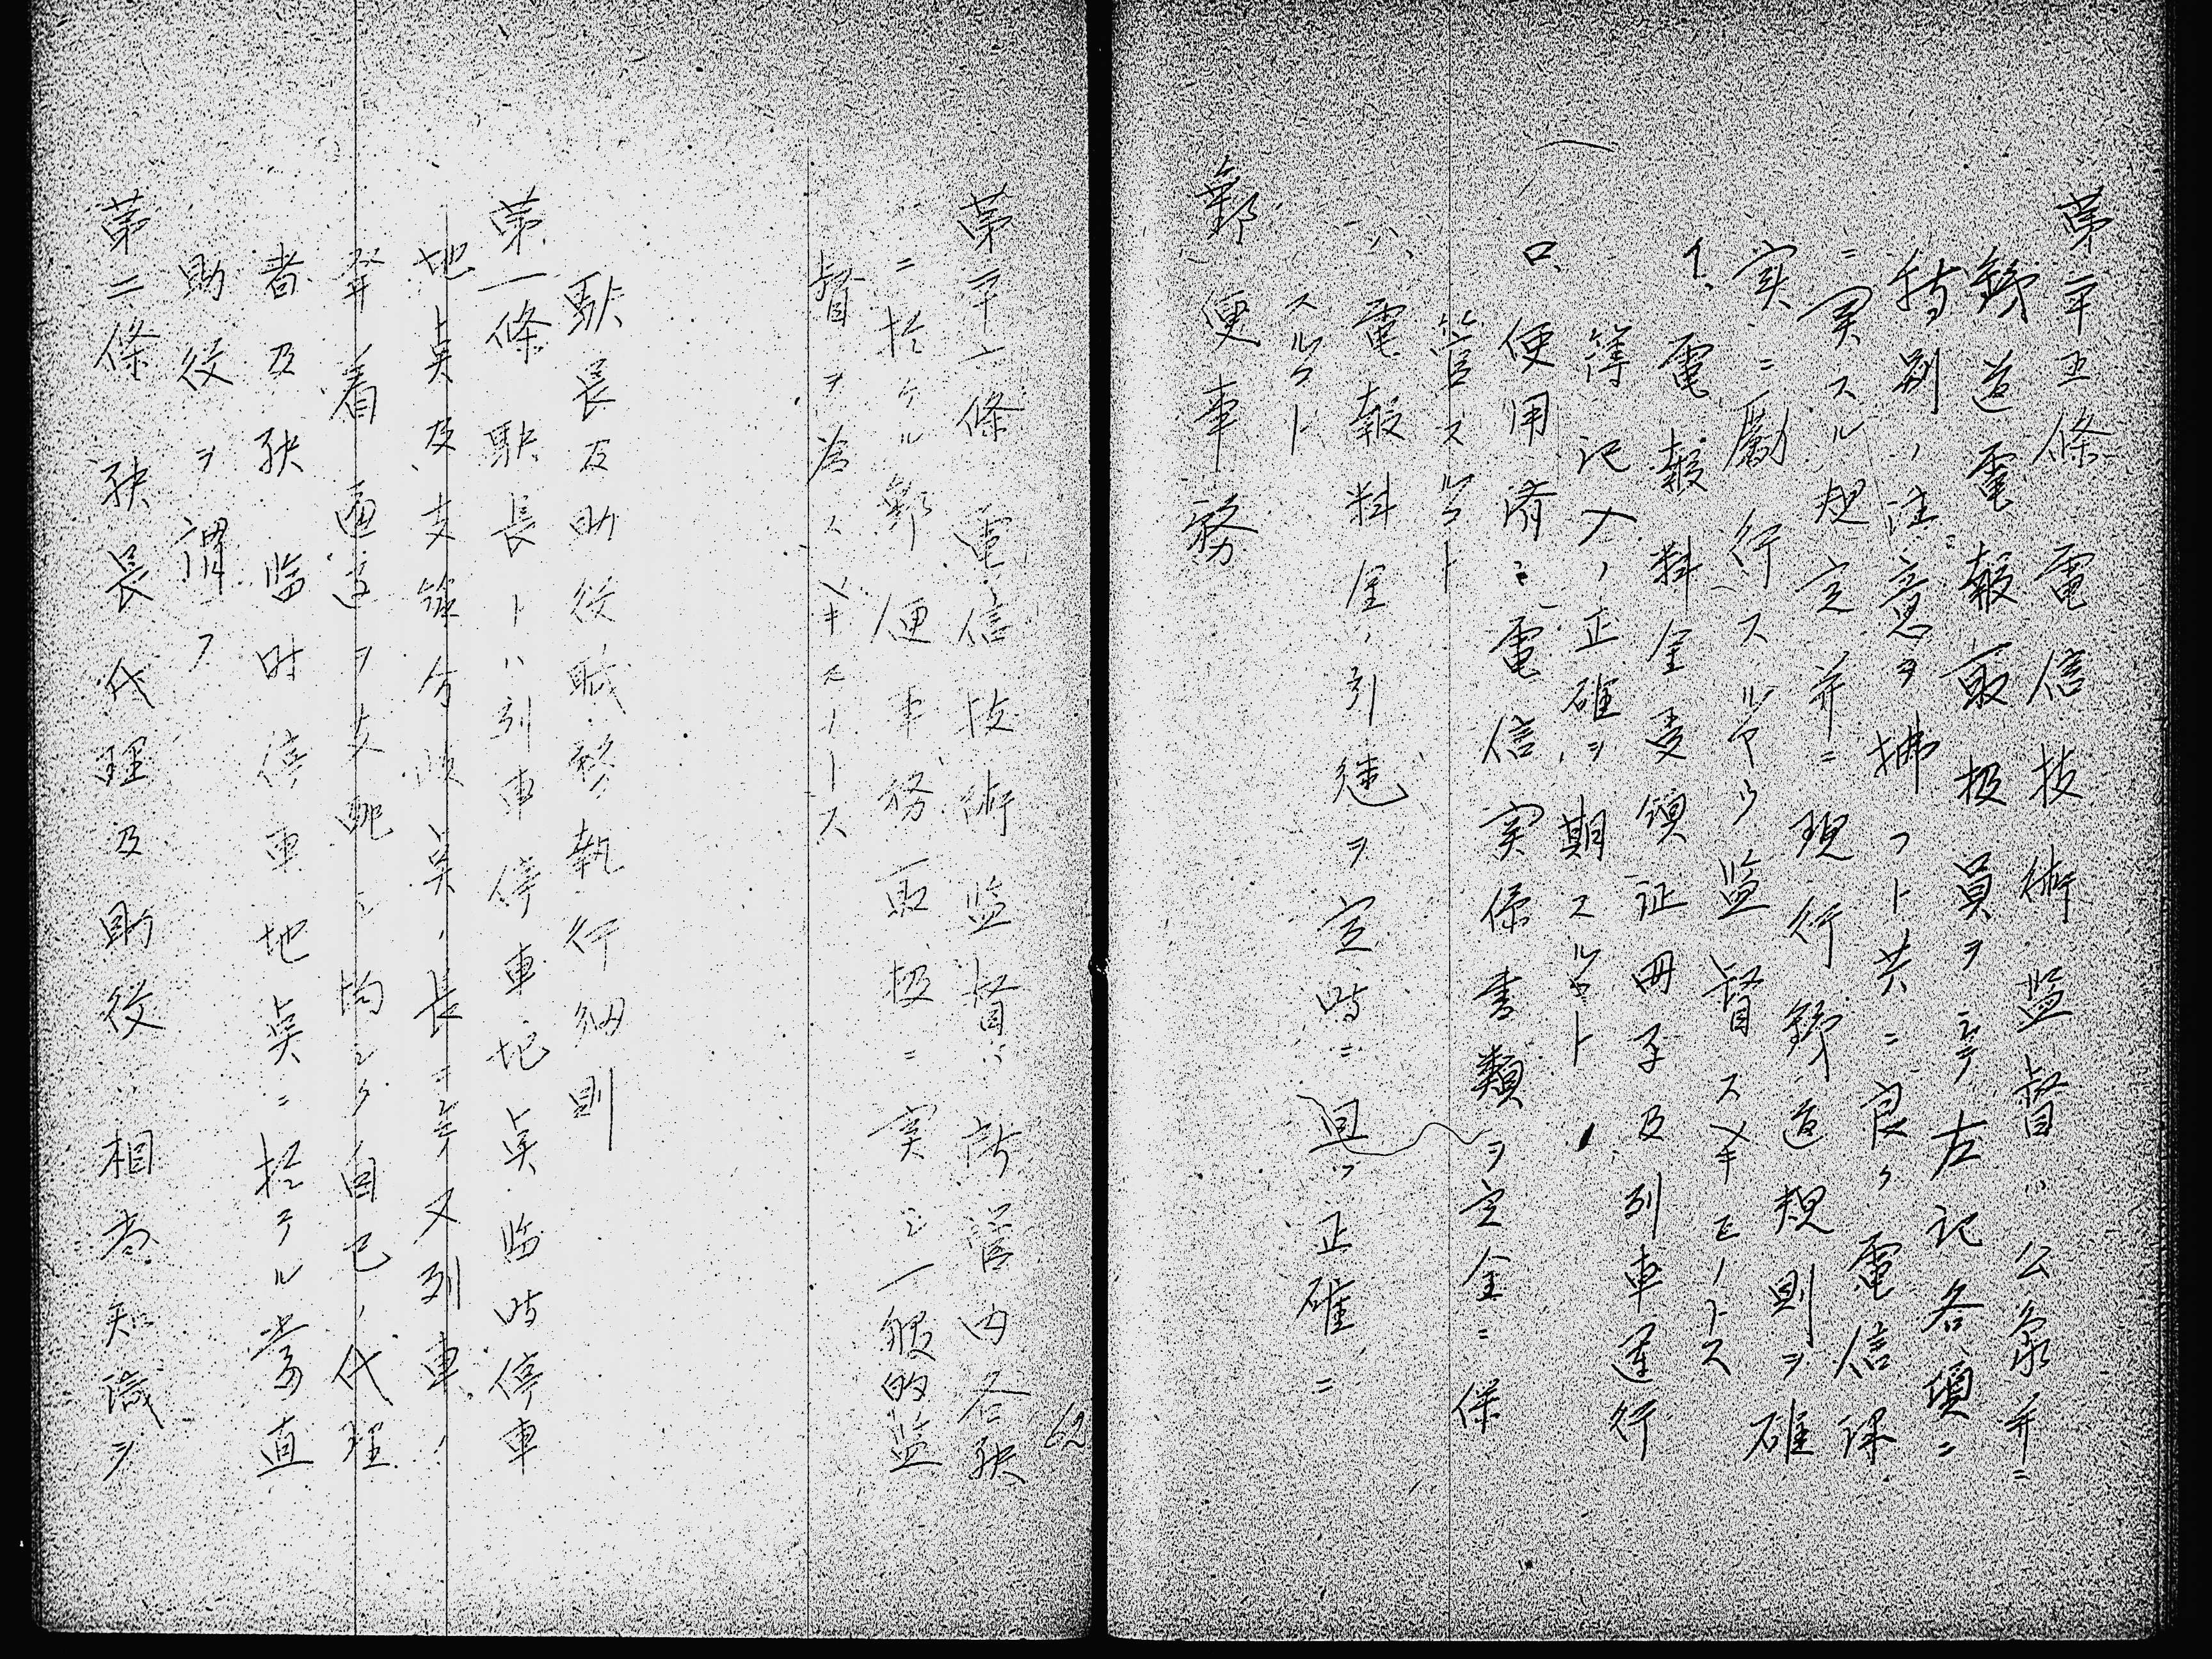 第二十五條 電信技術監督ハ公衆并ニ
鉄道電報取扱員ヲシテ左記各項ニ
特別ノ注意ヲ拂フト共ニ良ク電信課
ニ関スル規定并ニ現行鉄道規則ヲ確
実ニ勵行スル様監督スベキモノトス
イ、電報料金受領証冊子及列車運行
簿記入ノ正確ヲ期スルコト
ロ、使用済ミ電信関係書類ヲ完全ニ保
管スルコト
ハ、電報料金ノ引継ヲ定時ニ且ツ正確ニ
スルコト
郵便事務
第二十六條 電信技術監督ハ所管内各駅
ニ於ケル郵便事務取扱ニ関シ一般的監
督ヲ為スベキモノトス
62
駅長及助役職務執行細則
第一條 駅長トハ列車停車地点臨時停車
地点及支線分岐点ノ長ニシテ又列車ノ
発着運送ヲ支配シ均シク自己ノ代理
者及駅臨時停車地点ニ於ケル当直
助役ヲ謂フ
第二條 駅長代理及助役ハ相当知識ヲ